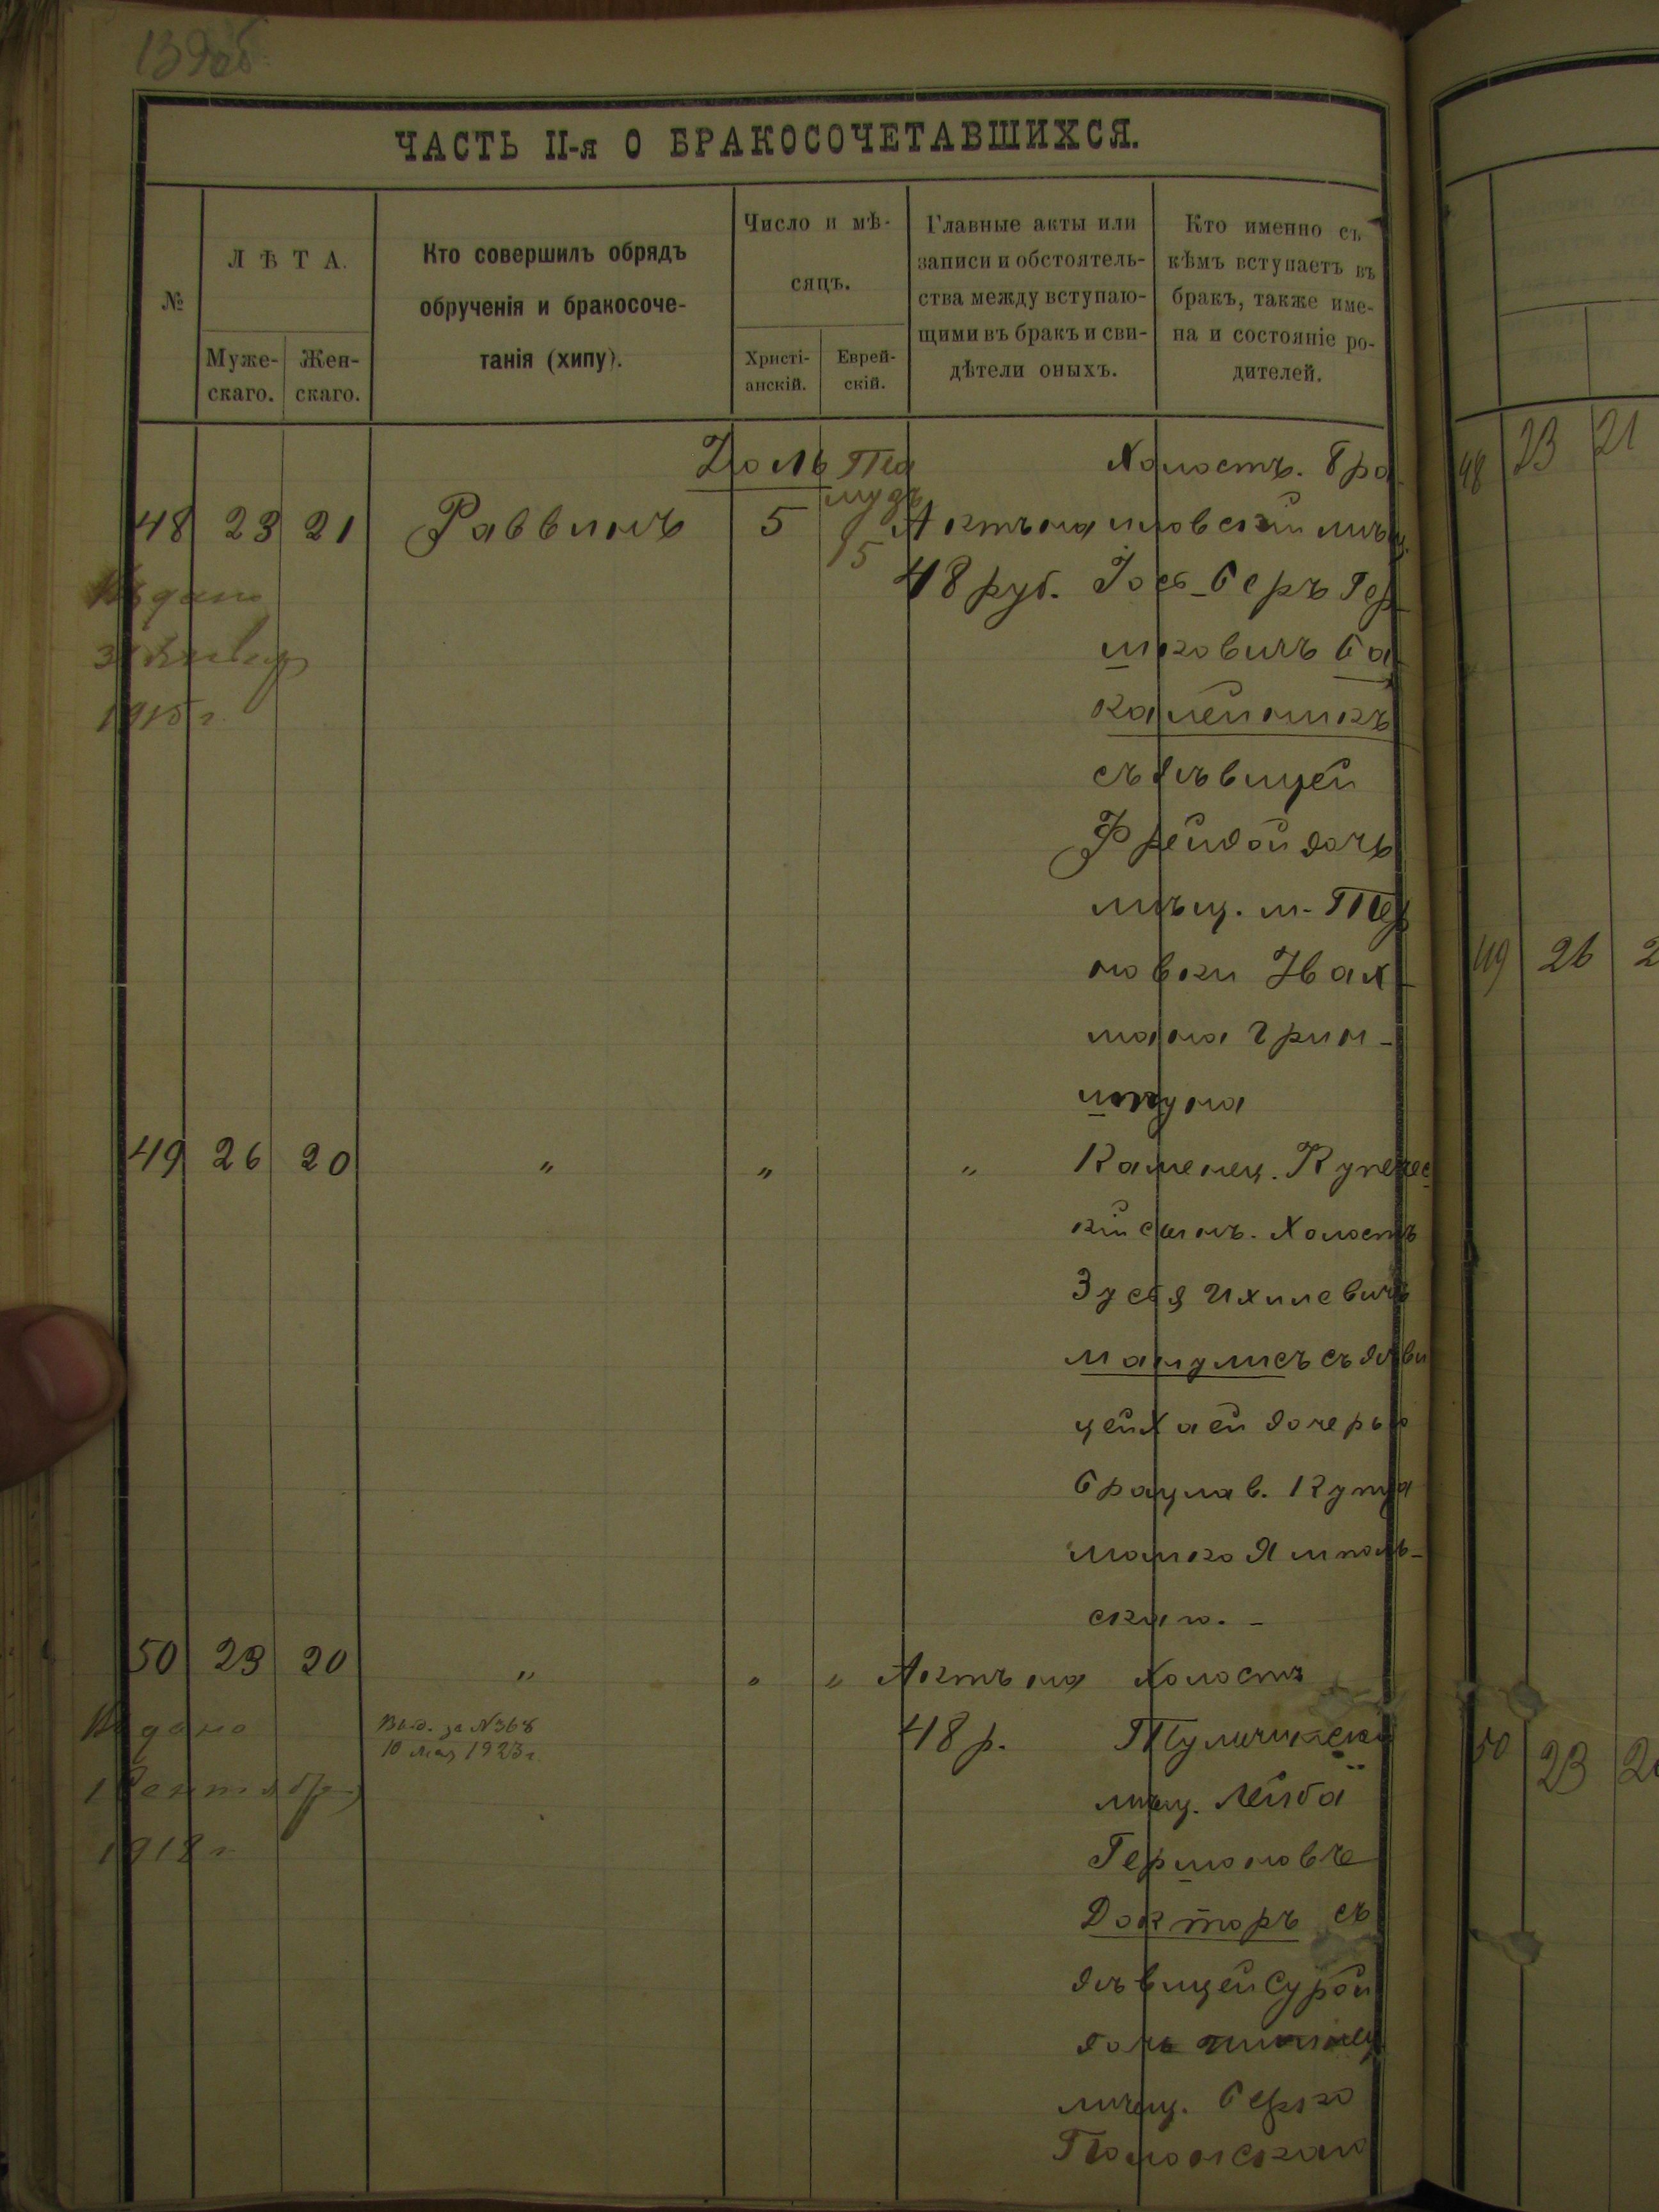 139об
ЧАСТЬ II-я О БРАКОСОЧЕТАВШИХСЯ.
№
ЛѢТА.
Муже-
скаго.
Жен-
скаго.
Кто совершилъ обрядъ
обрученія и бракосоче-
танія (хипу).
Число и мѣ-
сяцъ.
Христі-
анскій.
Еврей-
скій.
Главные акты или
записи и обстоятель-
ства между вступаю-
щими въ бракъ и сви-
дѣтели оныхъ.
Кто именно съ
кѣмъ вступаетъ въ
бракъ, также име-
на и состояніе ро-
дителей.
48 23 21 Раввинъ
Іюль
5
15
Актъ на
48 руб.
Холостъ. Бра-
иловскій мѣщ.
Іось-Беръ Гер-
шковичъ Ба-
калейникъ
съ дѣвицей
Фрейдой дочь
мѣщ. м. Тер
новки Нах-
мана Грин-
шпуна
Выдано
31 Января
1915 г.
49 26 20 " " "
Каменец. Купечес
кій сынъ. Холостъ
Зуся Ихилевичъ
Манулисъ съ дѣви
цей Хаей дочерью
Брацлав. Купца
Мошко Ямполь-
скаго. -
50 23 20 " " " Актъ на
48 р.
Холостъ
Тульчинскій
мѣщ. Лейба
Гершоновъ
Докторъ съ
дѣвицей Сурой
дочь
мѣщ. Берко
Полонскаго
Выдано
1 Сентября
1918 г.
Выд. за №368
10 мая 1923 г.
48 23 21
49 26 2
50 23 2